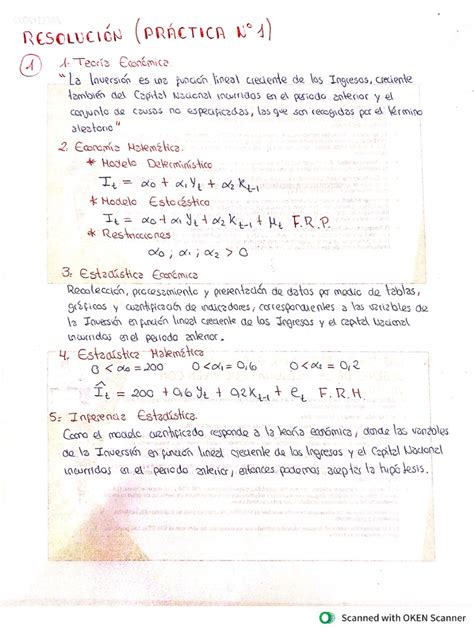 RESOLUCIÓN (PRÁCTICA N°1)
1 1. Teoría Económica
"La Inversión es una función lineal creciente de los Ingresos, creciente
también del Capital Nacional incurridos en el periodo anterior y el
conjunto de causas no especificadas, las que son recogidas por el término
aleatorio"
2. Economía Matemática.
* Modelo Determinístico
It = α0 + α1 Yt + α2 Kt-1
* Modelo Estocástico
It = α0 + α1 Yt + α2 Kt-1 + μt F.R.P.
* Restricciones
α0 ; α1 ; α2 > 0
3. Estadística Económica
Recolección, procesamiento y presentación de datos por medio de tablas,
gráficos y cuantificación de indicadores, correspondientes a las variables de
la Inversión en función lineal creciente de los Ingresos y el capital Nacional
incurridos en el periodo anterior.
4. Estadística Matemática
0 < α0 = 200 0 < α1 = 0,6 0 < α2 = 0,2
Ît = 200 + 0,6 Yt + 0,2 Kt-1 + et F.R.H.
5. Inferencia Estadística.
Como el modelo cuantificado responde a la teoría económica, donde las variables
de la Inversión en función lineal creciente de los Ingresos y el Capital Nacional
incurridos en el periodo anterior, entonces podemos aceptar la hipótesis.
Scanned with OKEN Scanner